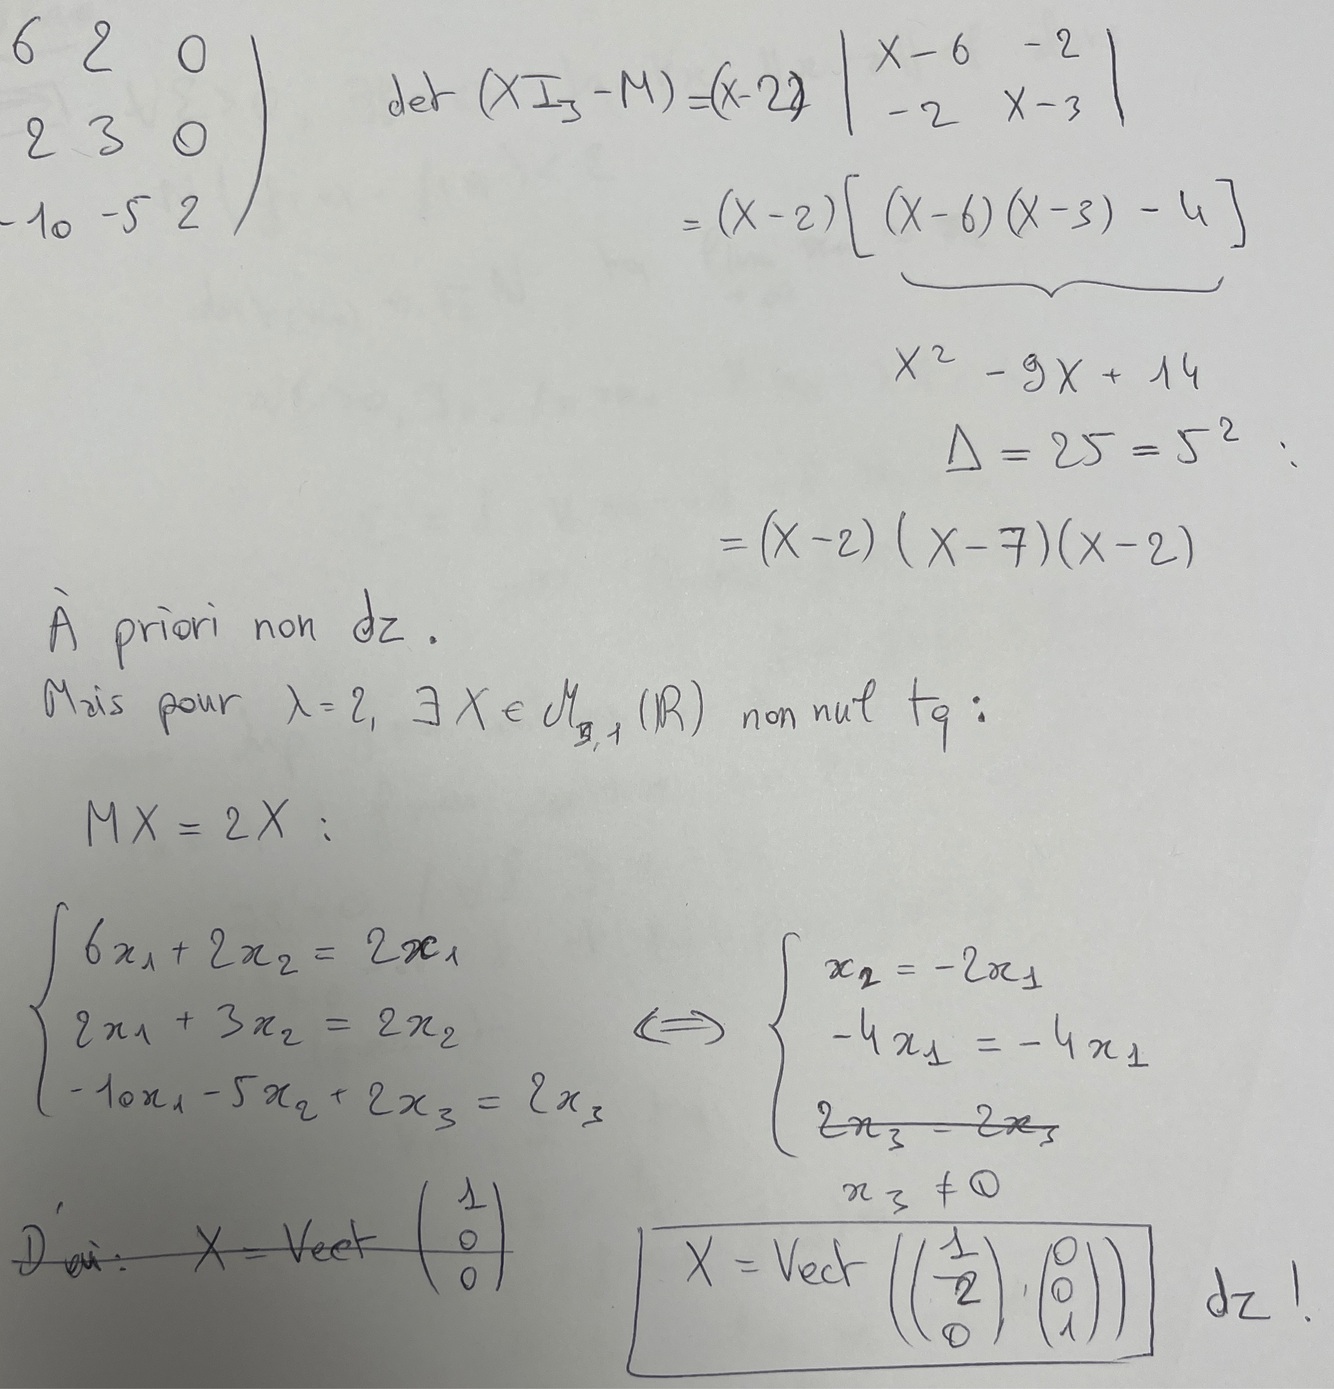 6 2 0
2 3 0
-10 -5 2
det (XI₃ - M) = (X-2) | X-6 -2 |
| -2 X-3 |
= (X-2) [ (X-6)(X-3) - 4 ]
X² - 9X + 14
Δ = 25 = 5² :
= (X-2) (X-7)(X-2)
À priori non dz.
Mais pour λ = 2, ∃ X ∈ M₃,₁ (ℝ) non nul tq :
MX = 2X :
6x₁ + 2x₂ = 2x₁
2x₁ + 3x₂ = 2x₂
-10x₁ - 5x₂ + 2x₃ = 2x₃
⟺
x₂ = -2x₁
-4x₁ = -4x₁
2x₃ = 2x₃
x₃ ≠ 0
D'où : X = Vect (1 0 0)
X = Vect ((1 -2 0), (0 0 1)) dz !